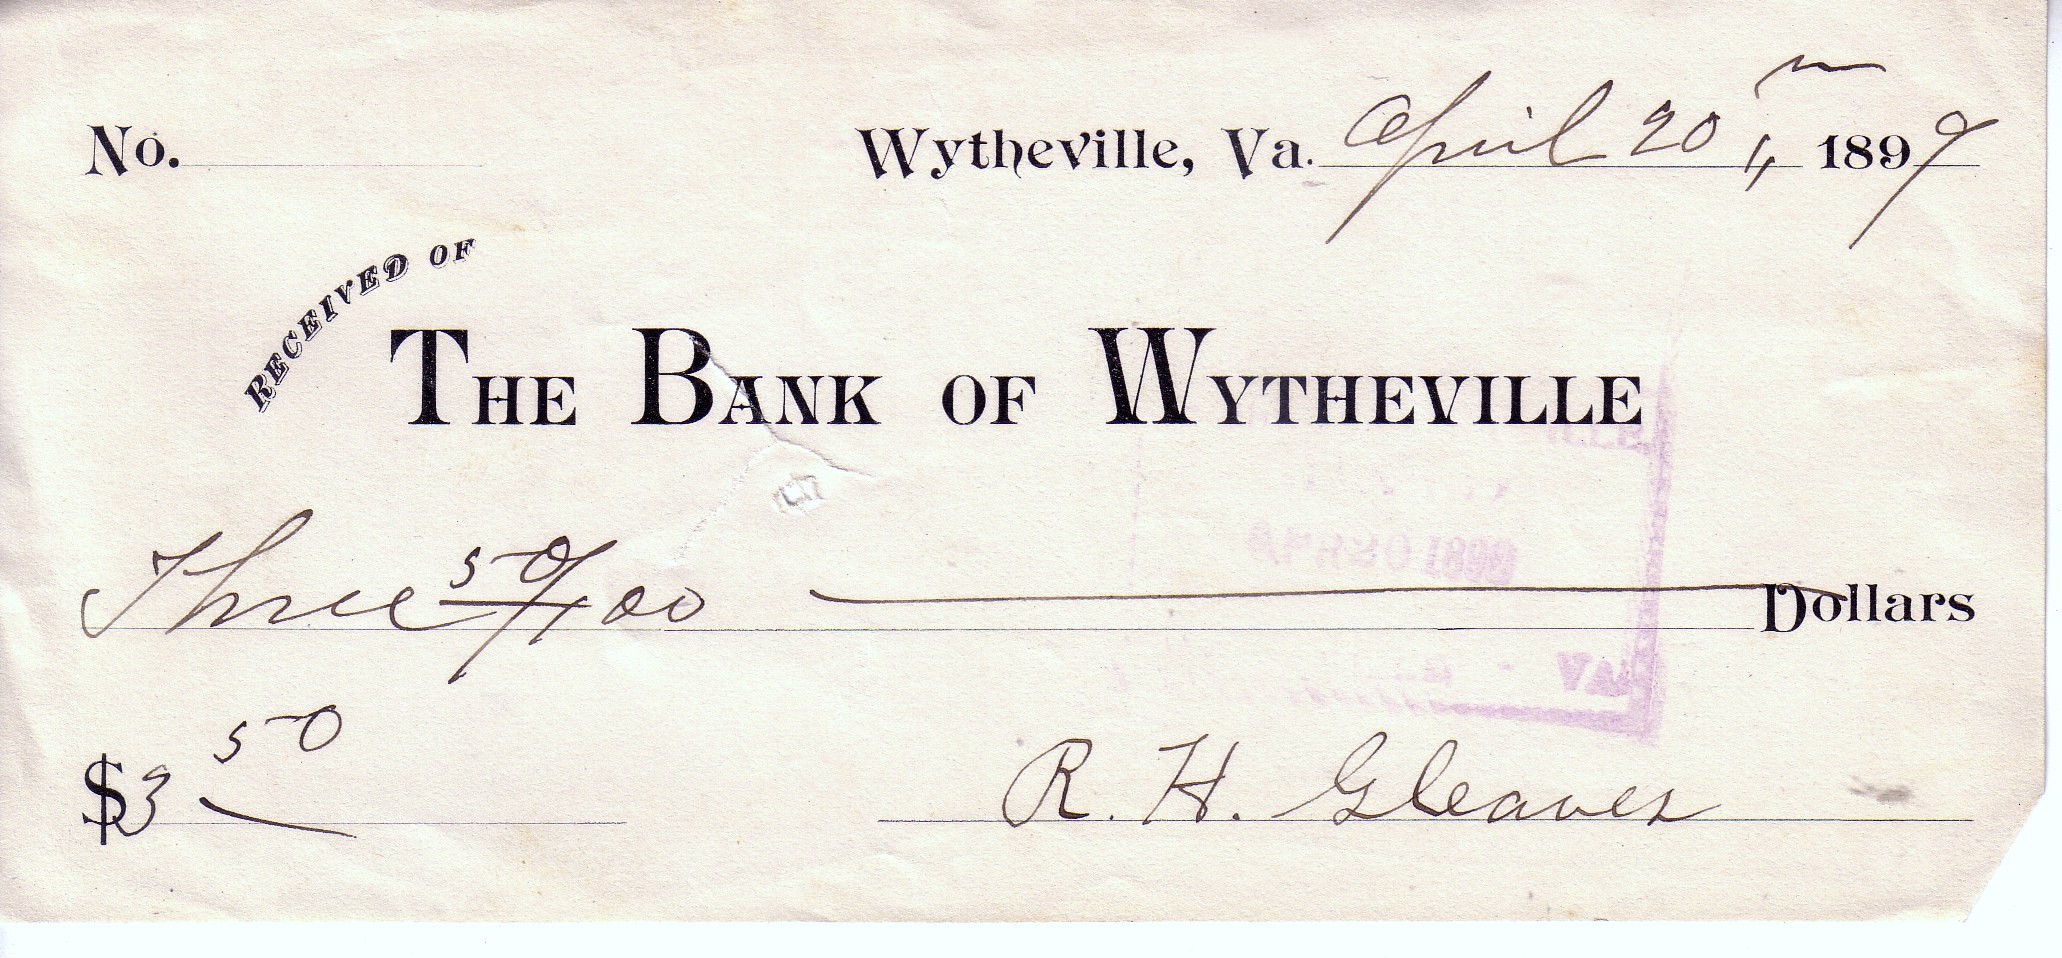 No. Wytheville, Va. April 20th, 1899
RECEIVED OF
THE BANK OF WYTHEVILLE
Three 50/100 Dollars
$3 50 R. H. Gleaves